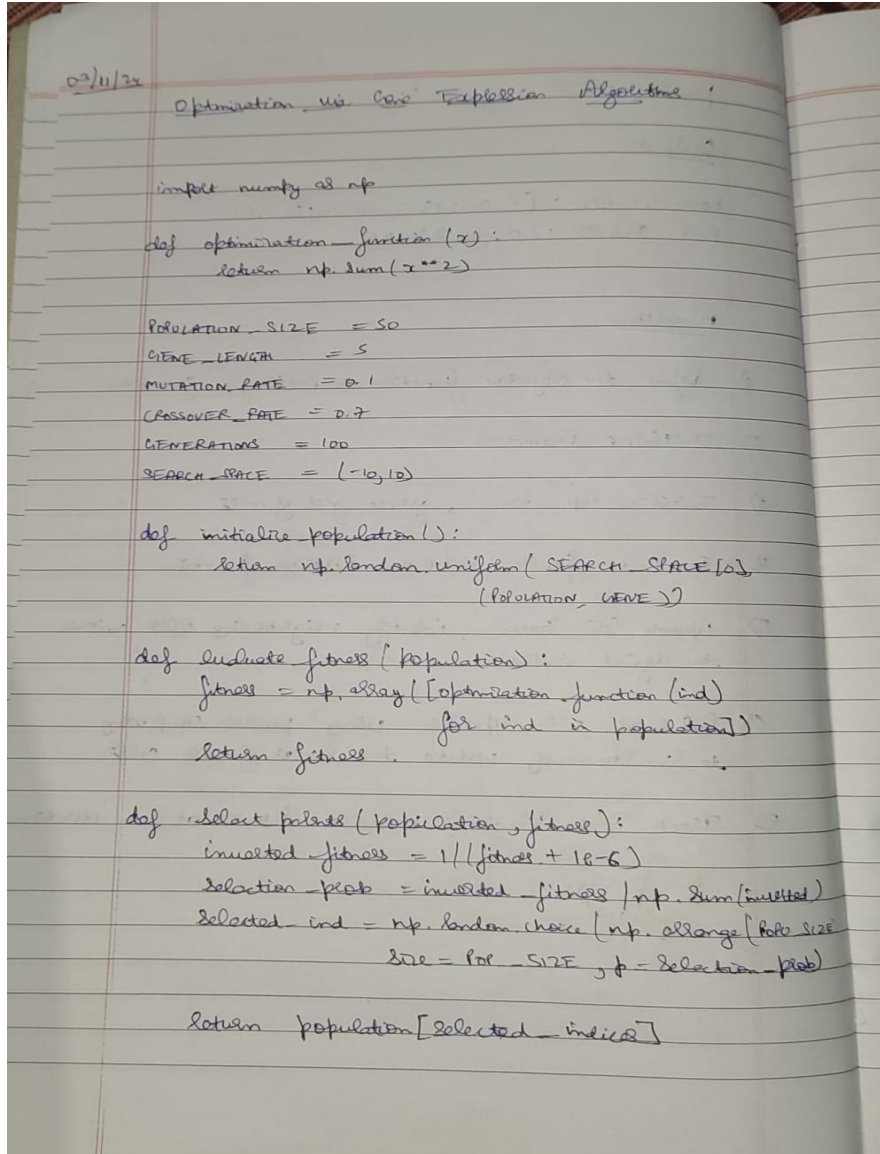 /11/24
Optmization via Gene Expression Algorithms :
import numpy as np
def optimization_function (x) :
return np.sum(x**2)
POPULATION_SIZE = 50
GENE_LENGTH = 5
MUTATION_RATE = 0.1
CROSSOVER_RATE = 0.7
GENERATIONS = 100
SEARCH_SPACE = (-10,10)
def initialize_population() :
return np.random.uniform( SEARCH_SPACE[0],
(POPULATION, GENE ))
def evaluate fitness( population) :
fitness = np.array([optmization_function (ind)
for ind in population])
return fitness.
def select parents (population, fitness) :
inverted_fitness = 1/(fitness + 1e-6)
selection_prob = inverted_fitness / np.sum(inverted)
selected_ind = np.random.choice (np.arrange(POPU SIZE
size = POP_SIZE, p = selection_prob)
return population[selected_indices]